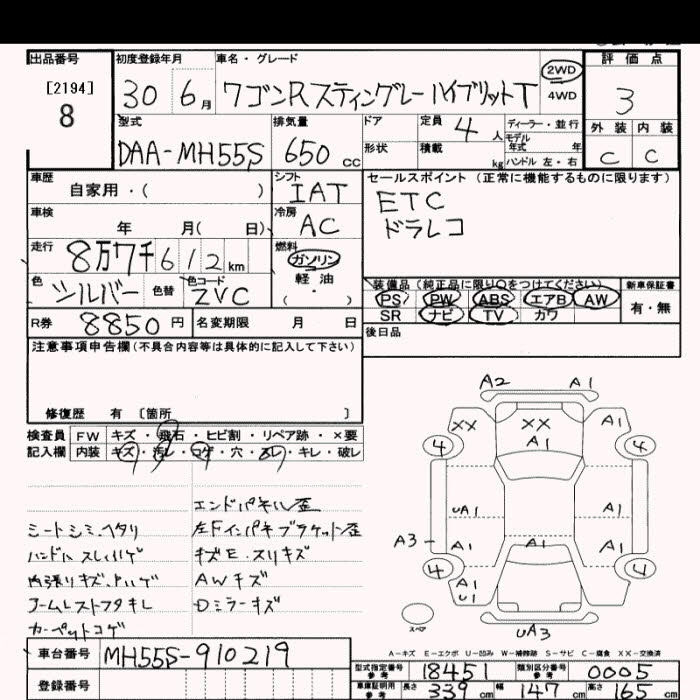 出品番号 初度登録年月 車名・グレード 評価点
[2194]
8
30 6月 ワゴンRスティングレーハイブリットT 2WD 4WD 3
型式 排気量 ドア 定員 4人 ディーラー・並行 外装 内装
DAA-MH55S 650cc 形状 積載 kg モデル年式 年 ハンドル 左・右 C C
車歴 自家用・( ) シフト IAT セールスポイント (正常に機能するものに限ります)
車検 年 月( 日) 冷房 AC ETC
ドラレコ
走行 8万7千612km 燃料 ガソリン 軽油 ( ・ )
色 シルバー 色替 色コード ZVC 装備品 (純正品に限り○をつけてください) 新車保証書
PS PW ABS エアB AW 有・無
SR ナビ TV カワ
R券 8850円 名変期限 月 日 後日品
注意事項申告欄(不具合内容等は具体的に記入して下さい)
修復歴 有 〔箇所 〕
検査員 FW キズ・飛石・ヒビ割・リペア跡・×要
記入欄 内装 キズ・汚レ・コゲ・穴・スレ・キレ・破レ
エンドパネル歪
シートシミ、ヘタリ 左Fインパネブラケット歪
ハンドルスレ、ハゲ キズE・スリキズ
内張りキズ、ハゲ AWキズ
アームレストフタキレ Dミラーキズ
カーペットコゲ
A2 A1
XX XX A1
A1
4 4
UA1 A1
A3 A1 A1 A1
4 4
A1
U1
スペア
UA3
A-キズ E-エクボ U-凹み W-補修跡 S-サビ C-腐食 XX-交換済
車台番号 MH55S-910219
型式指定番号 参考 18451 類別区分番号 参考 0005
登録番号 車庫証明用 参考 長さ 339cm 幅 147cm 高さ 165cm